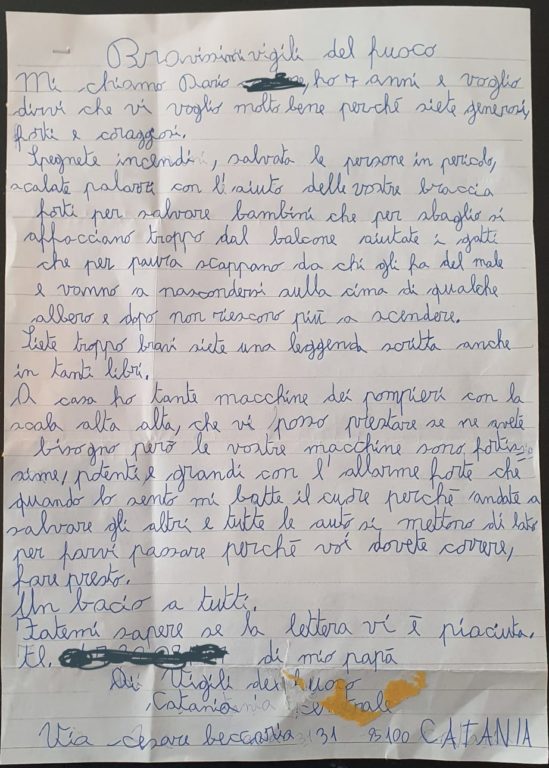 Bravissimi vigili del fuoco
Mi chiamo Dario, ho 7 anni e voglio
dirvi che vi voglio molto bene perché siete generosi,
forti e coraggiosi.
Spegnete incendi, salvata le persone in pericolo,
scalate palazzi con l'aiuto delle vostre braccia
forti per salvare bambini che per sbaglio si
affacciano troppo dal balcone aiutate i gatti
che per paura scappano da chi gli fa del male
e vanno a nascondersi sulla cima di qualche
albero e dopo non riescono più a scendere.
Siete troppo bravi siete una leggenda scritta anche
in tanti libri.
A casa ho tante macchine dei pompieri con la
scala alta alta, che vi posso prestare se ne avete
bisogno però le vostre macchine sono fortis
sime, potenti e grandi con l'allarme forte che
quando lo sento mi batte il cuore perché andate a
salvare gli altri e tutte le auto si mettono di lato
per farvi passare perché voi dovete correre,
fare presto.
Un bacio a tutti.
Fatemi sapere se la lettera vi è piaciuta.
Tl. di mio papà
Ai Vigili del fuoco
Catania centrale
Via cesare beccaria 31 95100 CATANIA